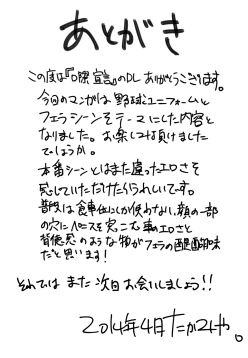 あとがき
この度は『口隠宣言』のDLありがとうございます。
今回のマンガは野球ユニフォームと
フェラシーンをテーマにした内容と
なりました。お楽しみ頂けました
でしょうか。
本番シーンとはまた違ったエロさを
感じていただけたらうれしいです。
普段は食事位にしか使わない、顔の一部
の穴にペニスを突こむ事のエロさと
背徳感のような物がフェラの醍醐味
だと思います!
それではまた次回お会いしましょう!!
2014年4月